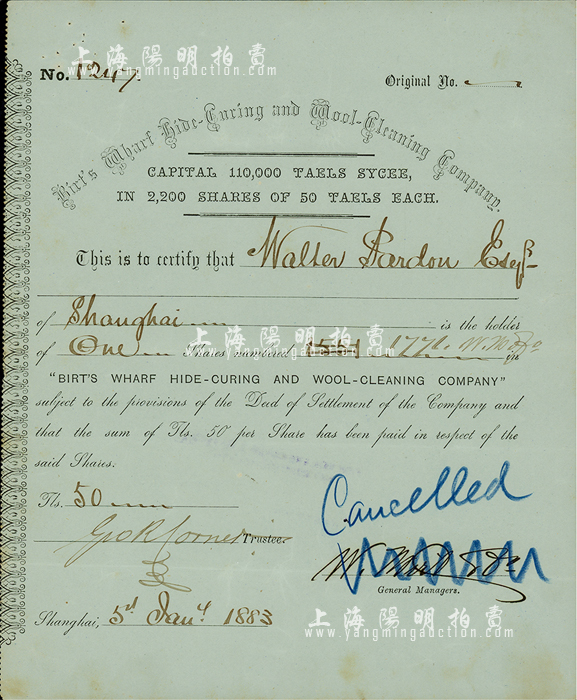 上海陽明拍賣
www.yangmingauction.com
No. 1247.
Original No.
Birt's Wharf Hide-Curing and Wool-Cleaning Company.
CAPITAL 110,000 TAELS SYCEE,
IN 2,200 SHARES OF 50 TAELS EACH.
This is to certify that Walter Pardon Esqr
of Shanghai is the holder
上海陽明拍賣
of One Shares numbered 1771. in
www.yangmingauction.com
"BIRT'S WHARF HIDE-CURING AND WOOL-CLEANING COMPANY"
subject to the provisions of the Deed of Settlement of the Company and
that the sum of Tls. 50 per Share has been paid in respect of the
said Shares.
Cancelled
Tls. 50
Geo R Corner Trustee.
General Managers.
Shanghai, 5th Jany 1883
上海陽明拍賣
www.yangmingauction.com